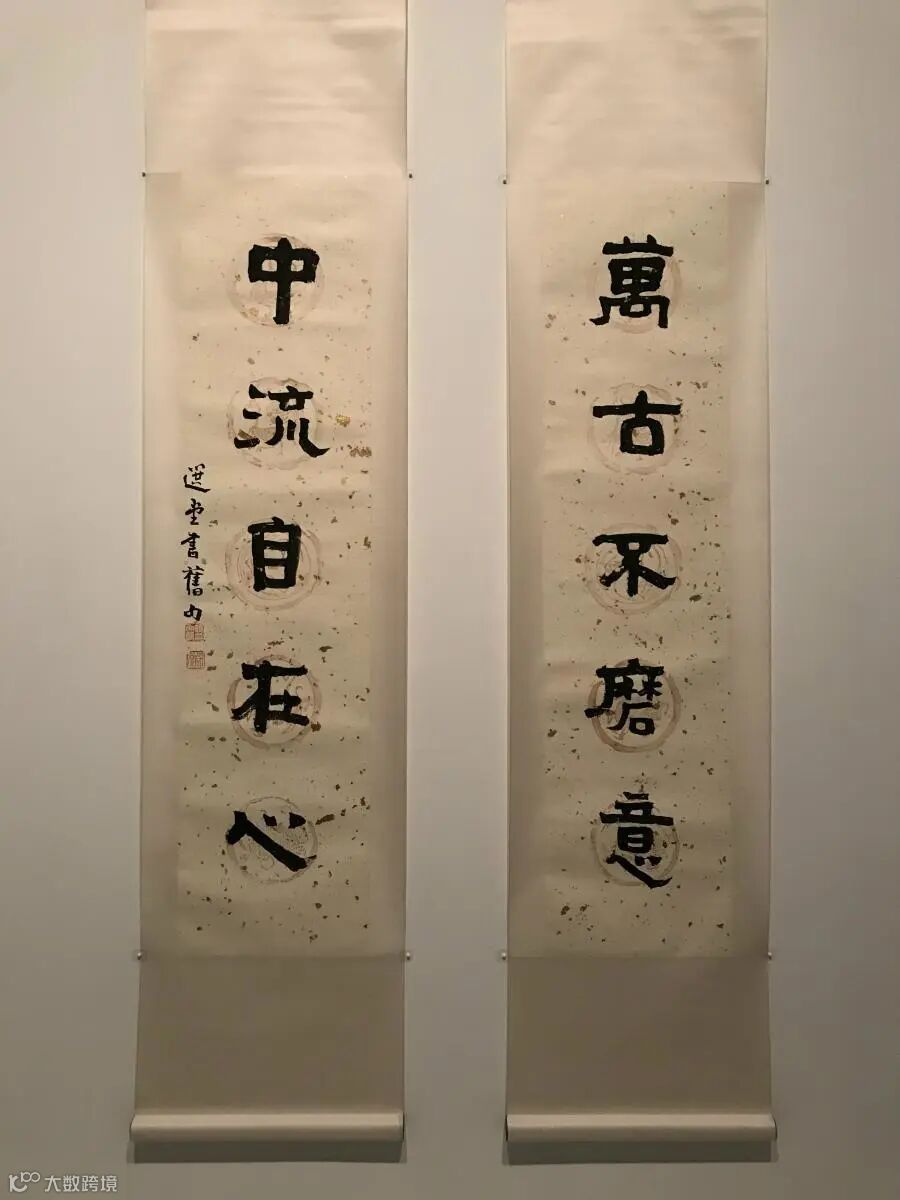 萬古不磨意
中流自在心
選堂書舊句
大数跨境